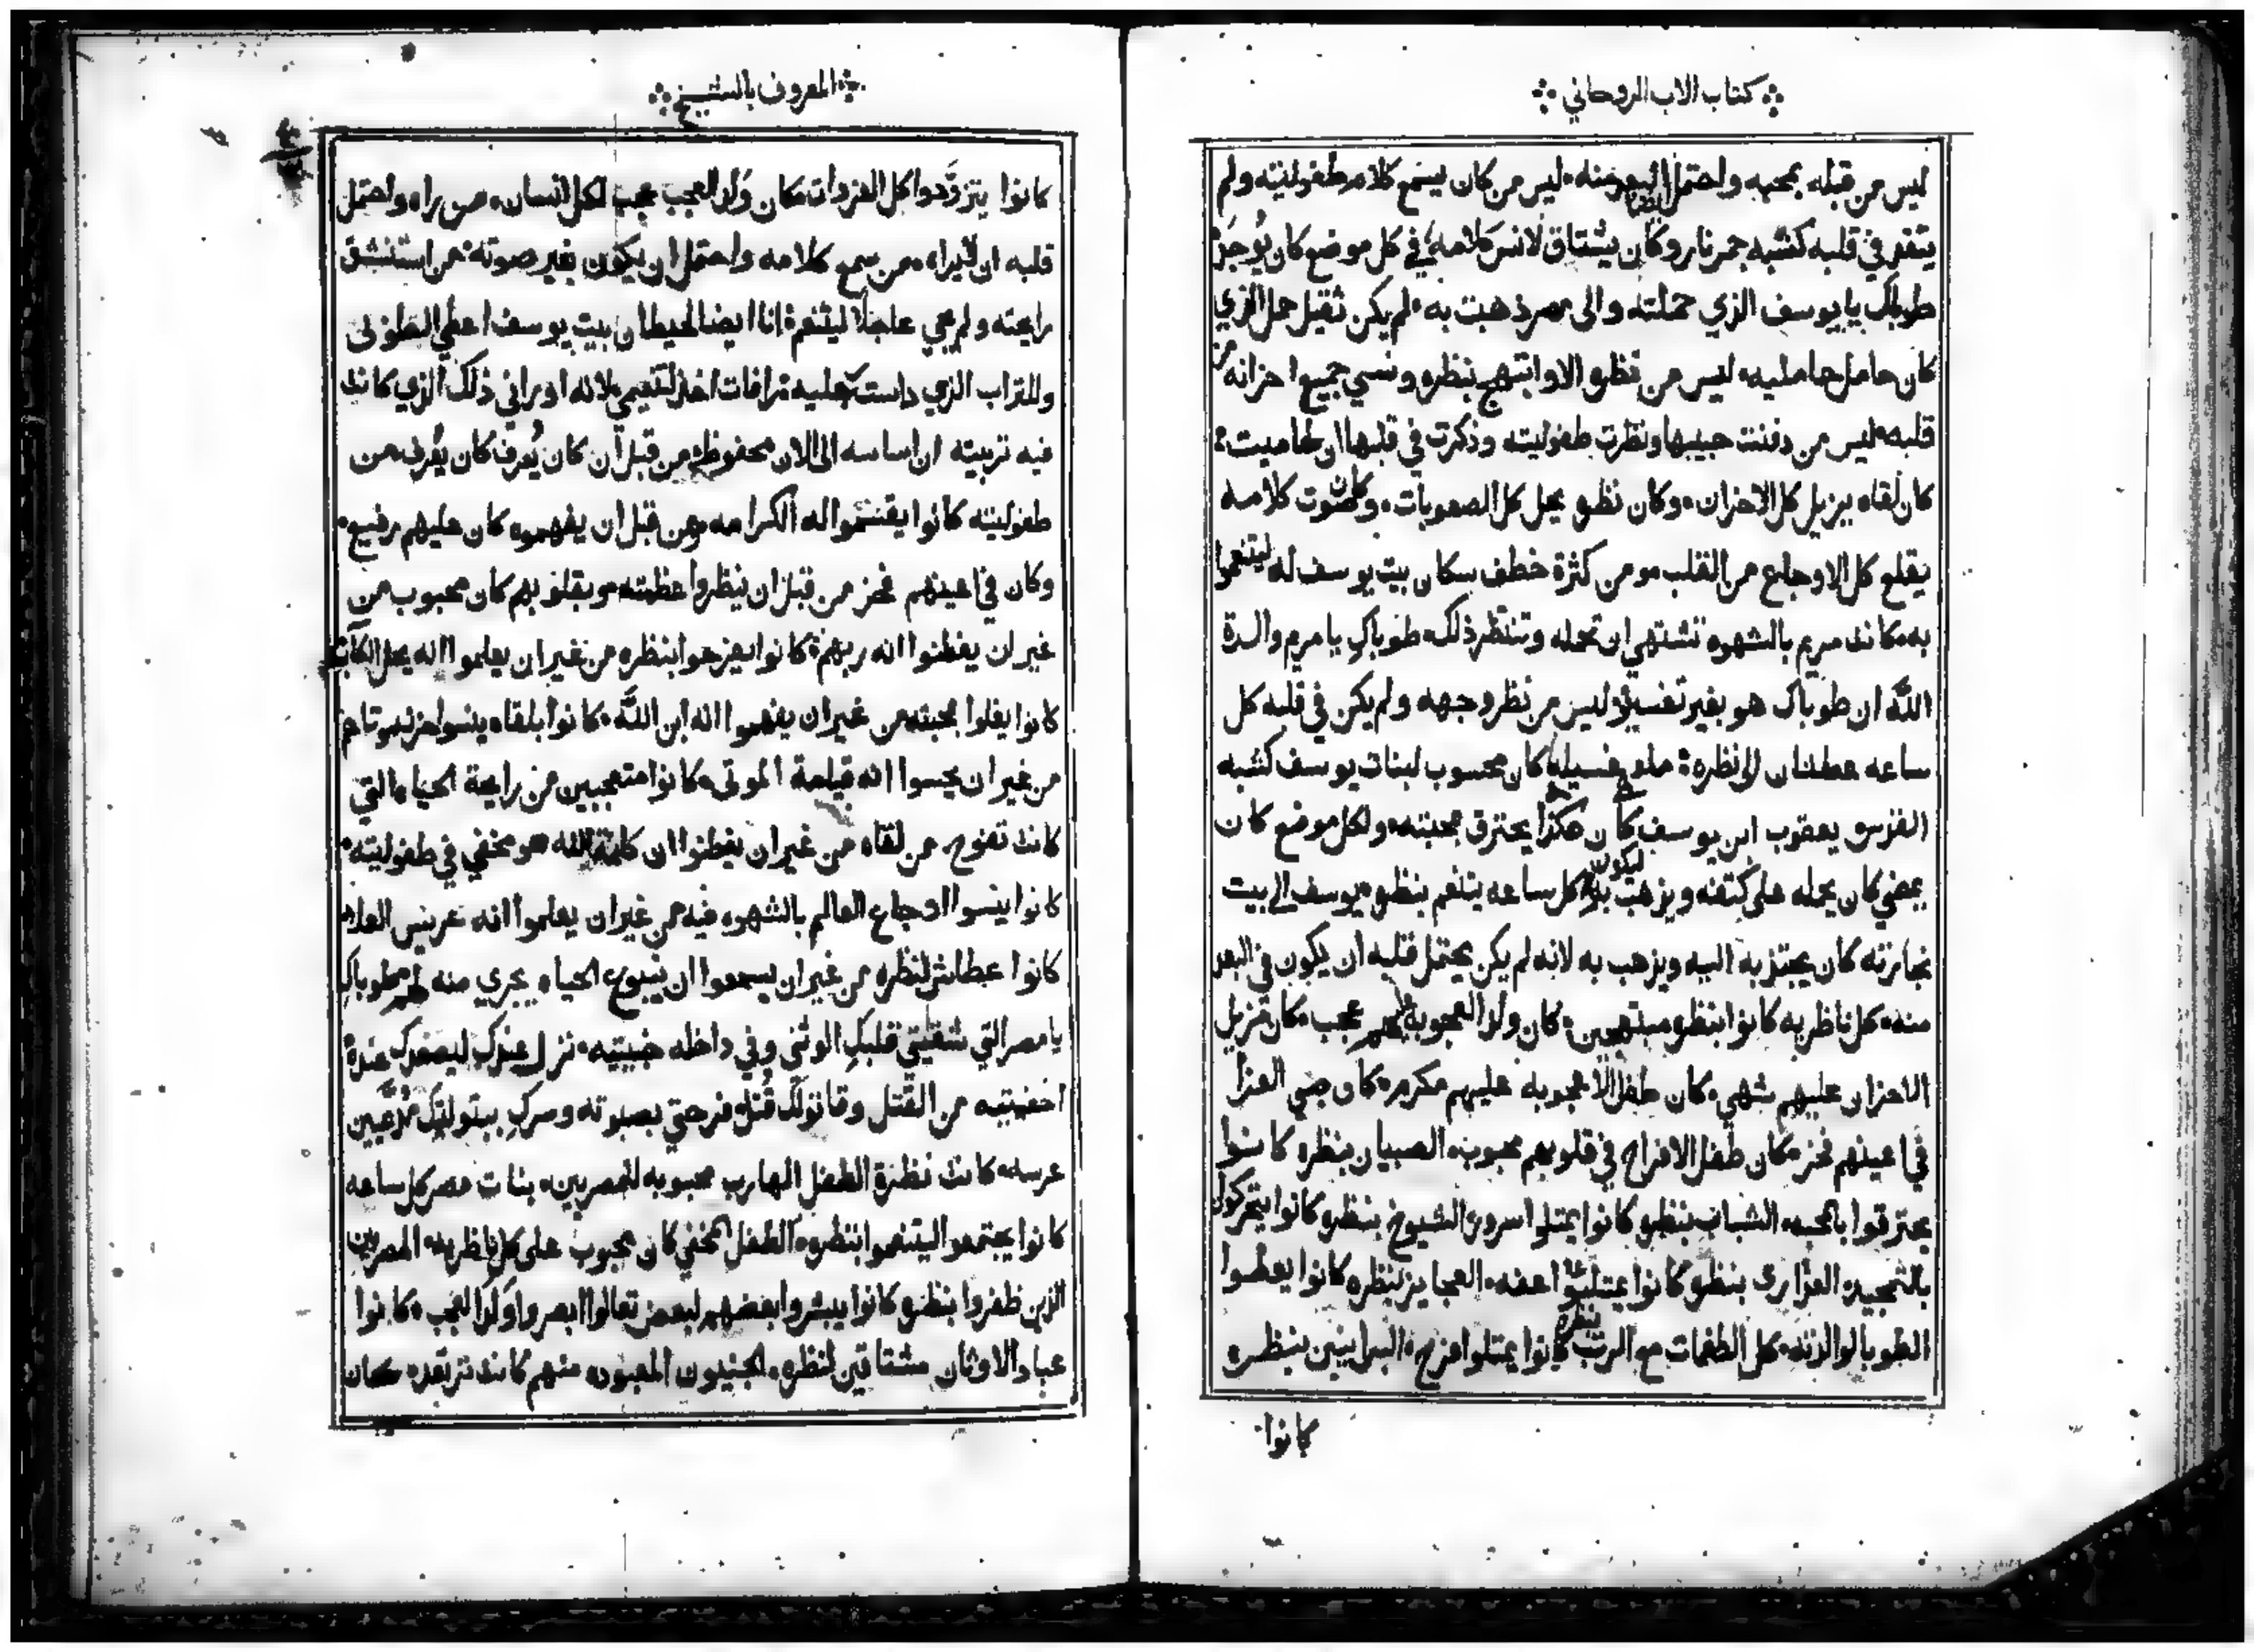 كتاب الاب الروحاني
ليس من قبله بمحبه واحتمل البعد منه ليس من كان يسمع كلام طفوليته ولم
يتقد في قلبه كشبه جمر نار وكان يشتاق لانس كلامه في كل موضع كان يوجد
طوباك يا يوسف الذي حملته والى مصر ذهبت به لم يكن ثقيل حمل الذي
كان حامل حامليه ليس من نظره الا وابتهج بنظره ونسي جميع احزانه من
قلبه ليس من دفنت حبيبها ونظرت طفوليته وذكرت في قلبها ان لها ميت
كان لقاه يزيل كل الاحزان وكان نظره يحل كل الصعوبات وكان صوت كلامه
يقلع كل الاوجاع من القلب ومن كثرة خطف سكان بيت يوسف له ليتنعموا
به كانت مريم بالشهوه تشتهي ان تحمله وتنتظر ذلك طوباكِ يا مريم والدة
اللّه ان طوباكِ هو بغير تفسير ليس من نظر وجهه ولم يكن في قلبه كل
ساعه عطشان الى نظره كان محسوب لبنات يوسف كشبه
الفردوس يعقوب ابن يوسف كان هكذا يحترق بمحبته ولكل موضع كان
يمضي كان يحمله على كتفه ويذهب به ليكون كل ساعه يتنعم بنظره يوسف الى بيت
نجارته كان يجتذبه اليه ويذهب به لانه لم يكن يحتمل قلبه ان يكون في البعد
منه كل ناظريه كانوا بنظره مبتهجين كان ولد العجوبه لهم عجب كان مزيل
الاحزان عليهم شهي كان طفل الاعجوبه عليهم مكرم كان صبي العذرا
في اعينهم فخر كان طفل الافراح في قلوبهم محبوب الصبيان بنظره كانوا
يحترقوا بالمحبه الشباب بنظره كانوا يمتلوا سرور الشيوخ بنظره كانوا يتحركوا
بالتمجيد العذارى بنظره كانوا يمتلئوا عفه العجايز بنظره كانوا يعطوا
الطوبا لوالدته كل الطغمات مع الرتب بنظره كانوا يمتلوا فرح البرانيين بنظره
كانوا
المعروف بالشيخ
كانوا يتزودوا كل الفردات كان ولد العجب عجب لكل انسان من راه واحتمل
قلبه ان لا يراه من سمع كلامه واحتمل ان يكون بغير صوته من استنشق
رايحته ولم يجي عاجلا ليتنعم انا ايضا لحيطان بيت يوسف اعطي الطوبى
وللتراب الذي داست عليه اخذ لتقيمي لانه اوراني ذلك الذي كانت
فيه تربيته ان اساسه الى الان محفوظ من قبل ان كان يُعرف كان يُعرف من
طفوليته كانوا يقتسموا له الكرامه ومن قبل ان يفهموه كان عليهم رفيع
وكان في اعينهم فخر من قبل ان ينظروا عظمته وبقلوبهم كان محبوب من
غير ان يفطنوا انه ربهم كانوا يفرحوا بنظره من غير ان يعلموا انه يحل الكابه
كانوا يغلوا بمحبته من غير ان يفهموا انه ابن اللّه كانوا بلقاه ينسوا حزن موتاهم
من غير ان يحسوا انه قيامة الموتى كانوا متعجبين من رايحة الحياه التي
كانت تفوح من لقاه من غير ان يفطنوا ان كلمة الله هو مخفي في طفوليته
كانوا ينسوا اوجاع العالم بالشهوه فيه من غير ان يعلموا انه عريس العلا
كانوا عطاش لنظره من غير ان يسمعوا ان ينبوع الحياه يجري منه لهم طوباكِ
يا مصر التي شقيتي قلبكِ الوثني وفي داخله خبيتيه نزل عندكِ ليصعدكِ عنده
اخفيتيه من القتل وقانونكِ قُتل فرحتي بصبوته وسركِ ببتوليتكِ تُدعين
عرسه كانت نظرة الطفل الهارب محبوبه للمصريين بنات مصر كل ساعه
كانوا يجتمعوا ليتنعموا بنظره الطفل المخفي كان محبوب على كل ناظريه المصريين
الذين ظفروا بنظره كانوا يبشروا بعضهم لبعض تعالوا ابصروا ولد العجب كانوا
عباد الاوثان مشتاقين لنظره الجنيون المعبوده منهم كانت ترتعده كان